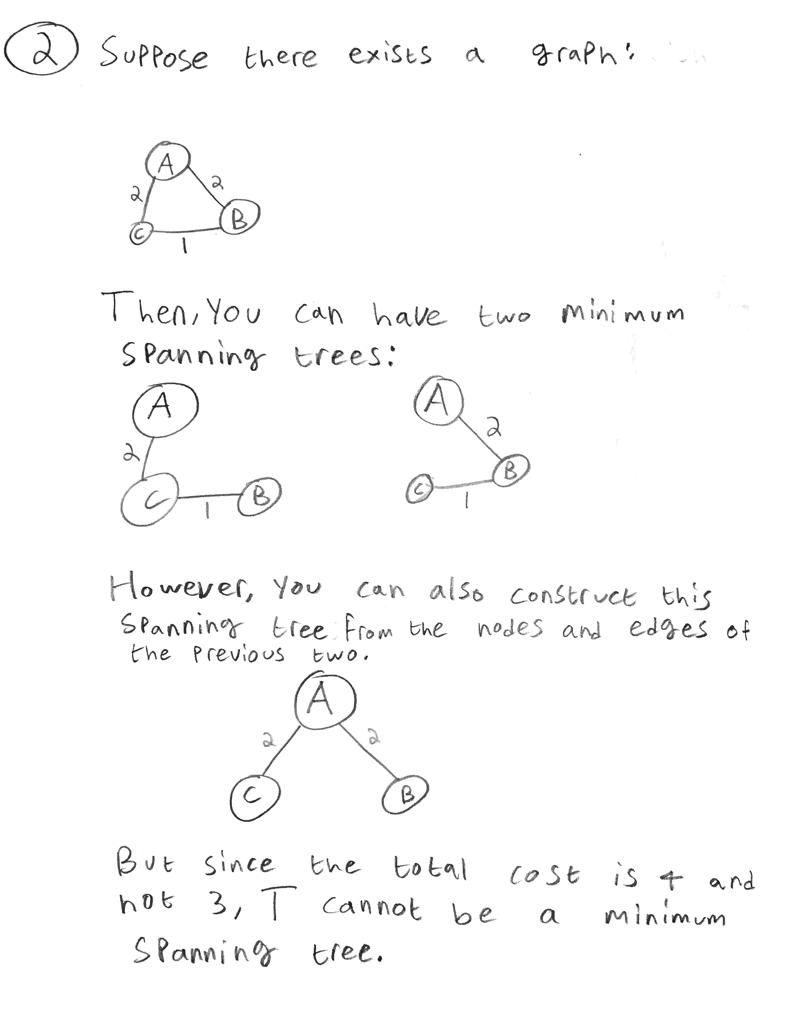 2 Suppose there exists a graph:
A
2 2
C B
1
Then, You can have two minimum
spanning trees:
A A
2 2
C B C B
1 1
However, You can also construct this
spanning tree from the nodes and edges of
the previous two.
A
2 2
C B
But since the total cost is 4 and
not 3, T cannot be a minimum
spanning tree.